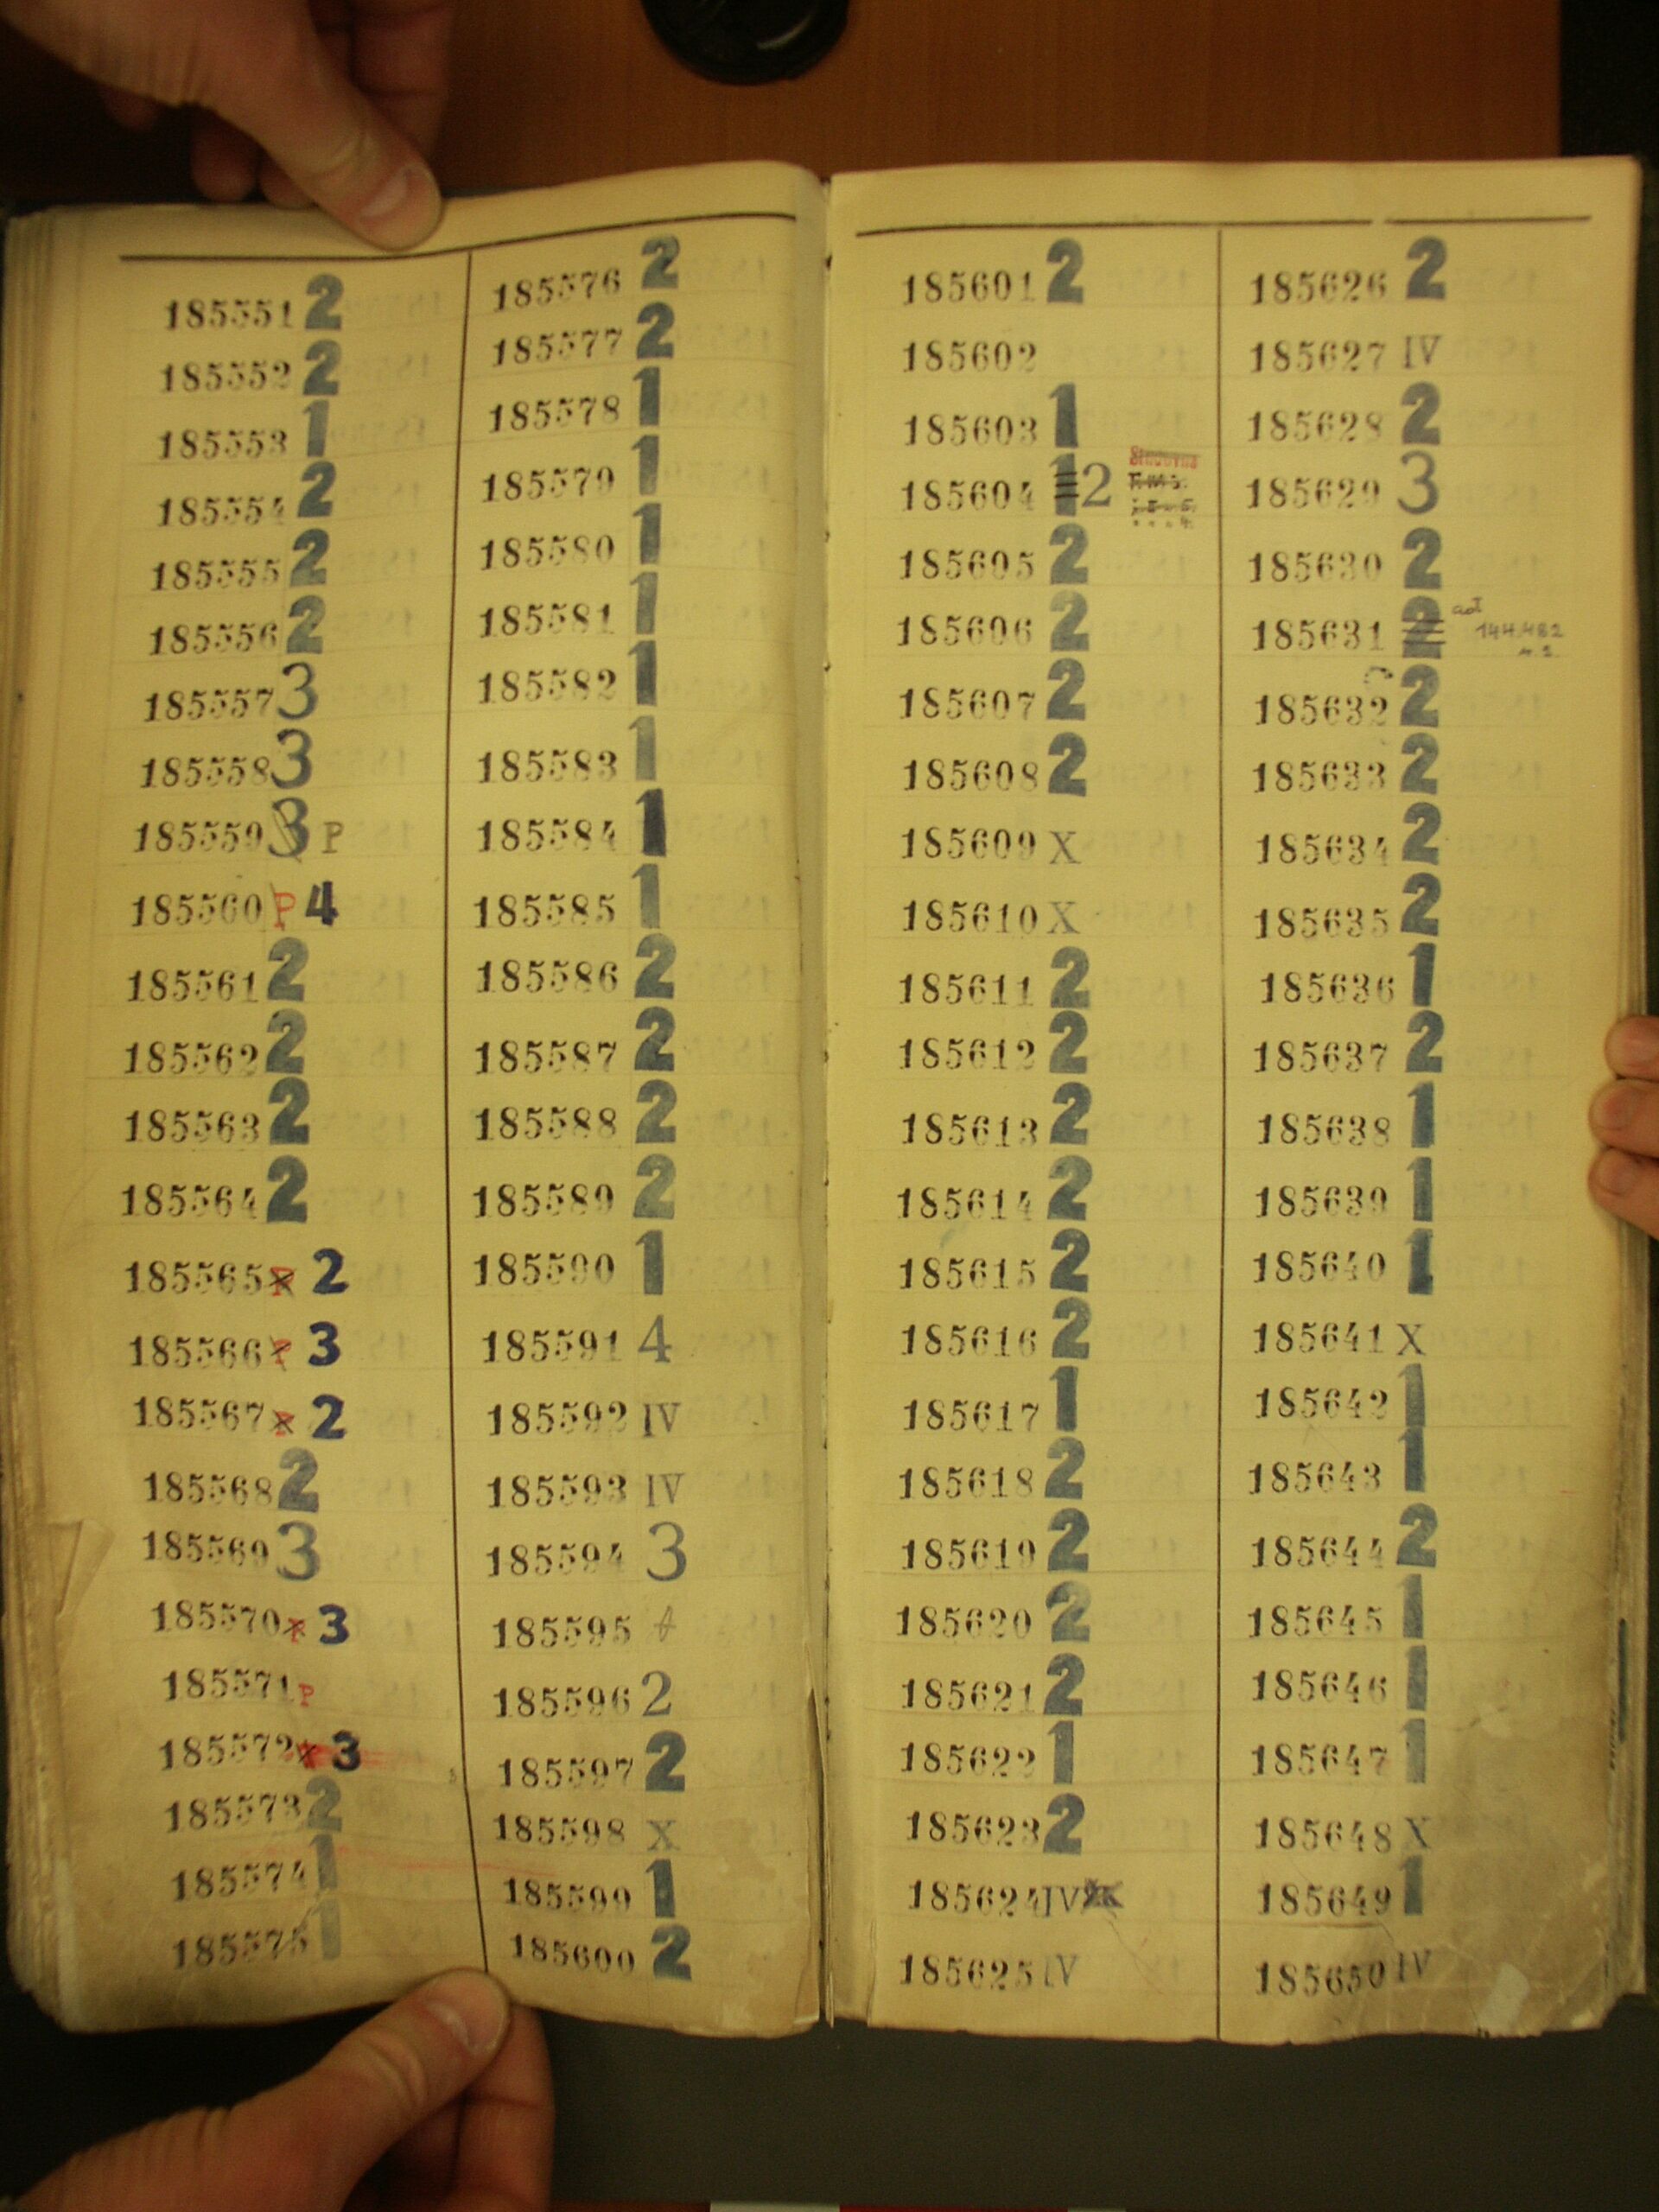 185551 2
185552 2
185553 1
185554 2
185555 2
185556 2
185557 3
185558 3
185559 3 P
185560 P 4
185561 2
185562 2
185563 2
185564 2
185565 P 2
185566 P 3
185567 P 2
185568 2
185569 3
185570 P 3
185571 P
185572 3
185573 2
185574 1
185575 1
185576 2
185577 2
185578 1
185579 1
185580 1
185581 1
185582 1
185583 1
185584 1
185585 1
185586 2
185587 2
185588 2
185589 2
185590 1
185591 4
185592 IV
185593 IV
185594 3
185595
185596 2
185597 2
185598 X
185599 1
185600 2
185601 2
185602
185603 1
185604 1 2
Studovna
185605 2
185606 2
185607 2
185608 2
185609 X
185610 X
185611 2
185612 2
185613 2
185614 2
185615 2
185616 2
185617 1
185618 2
185619 2
185620 2
185621 2
185622 1
185623 2
185624 IV
185625 IV
185626 2
185627 IV
185628 2
185629 3
185630 2
185631 2 adl 144.482
185632 2
185633 2
185634 2
185635 2
185636 1
185637 2
185638 1
185639 1
185640 1
185641 X
185642 1
185643 1
185644 2
185645 1
185646 1
185647 1
185648 X
185649 1
185650 IV